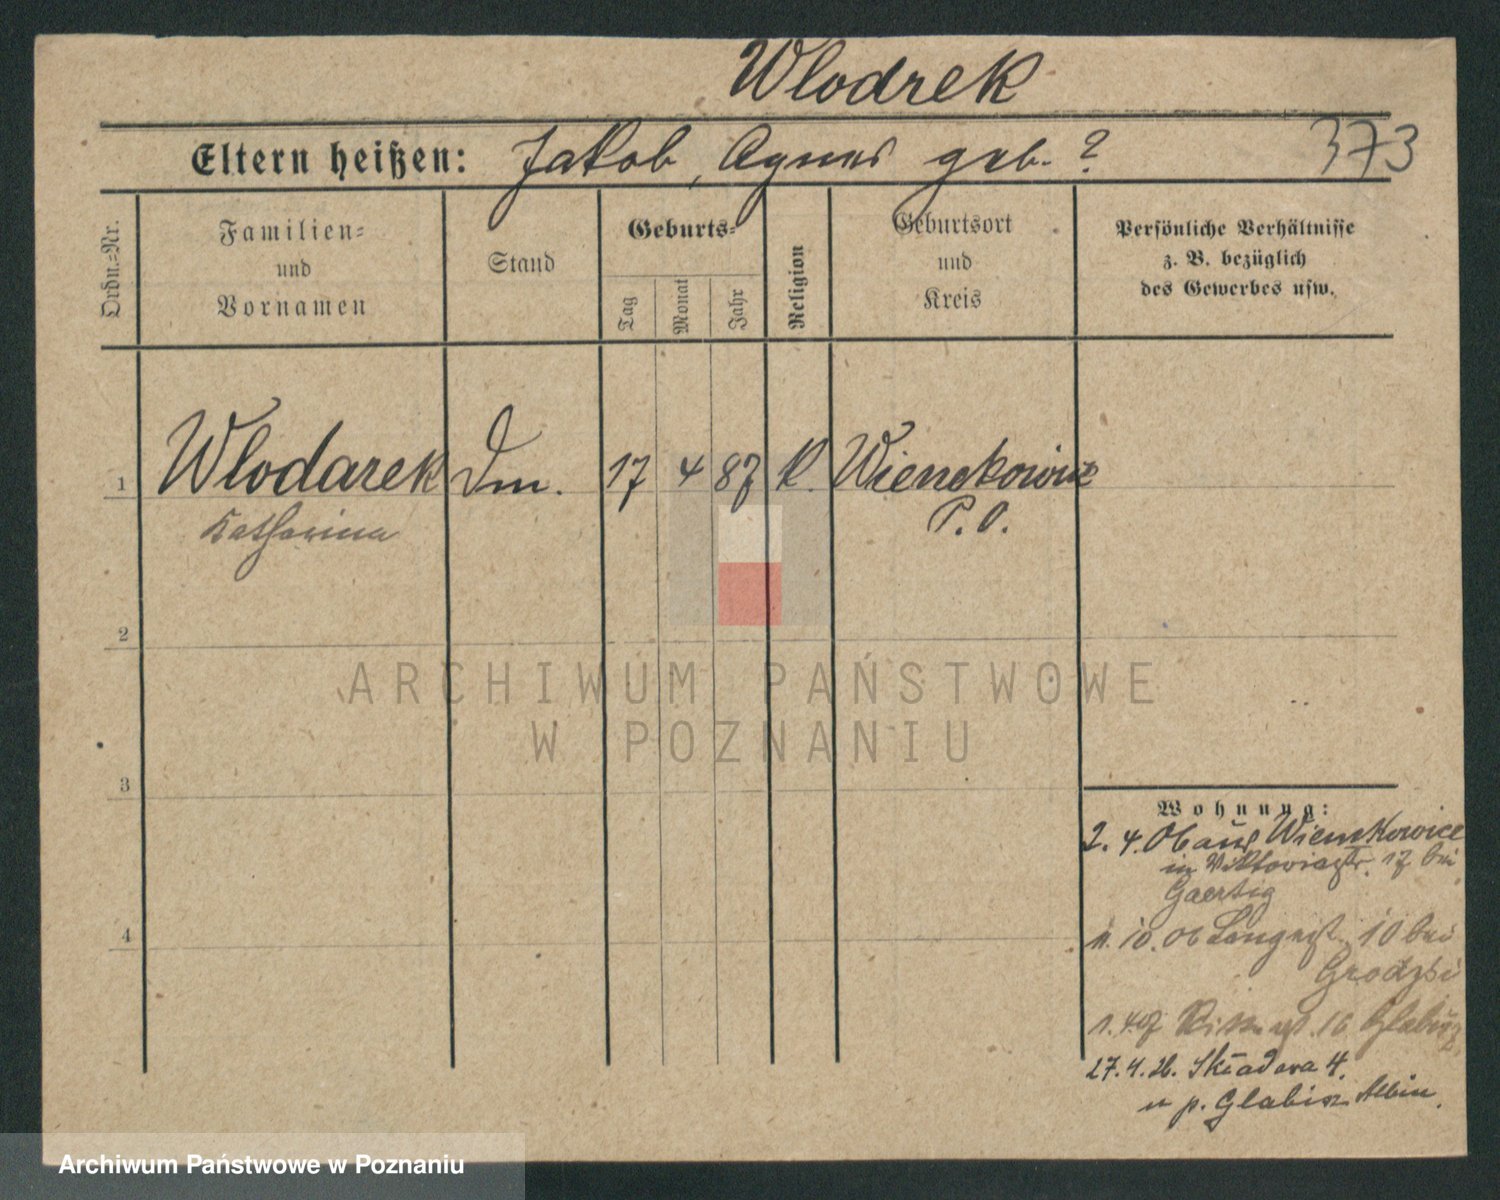 Wlodrek
373
Eltern heißen: Jakob, Agnes geb. ?
Ordn.-Nr.
Familien-
und
Vornamen
Stand
Geburts-
Tag
Monat
Jahr
Religion
Geburtsort
und
Kreis
Persönliche Verhältnisse
z. B. bezüglich
des Gewerbes usw.
1 Wlodarek Dm. 17 4 87 K. Wienckowice
Katharina P. O.
2
3
4
Wohnung:
2. 4. 06 aus Wienckowice
in Viktoriastr. 17 bei
Gaertig
1. 10. 06 Langestr. 10 bei
Grodzki
1. 4. 07 16 Glabisz
27. 4. 26. Składowa 4.
u p. Glabisz Albin.
ARCHIWUM PAŃSTWOWE
W POZNANIU
Archiwum Państwowe w Poznaniu